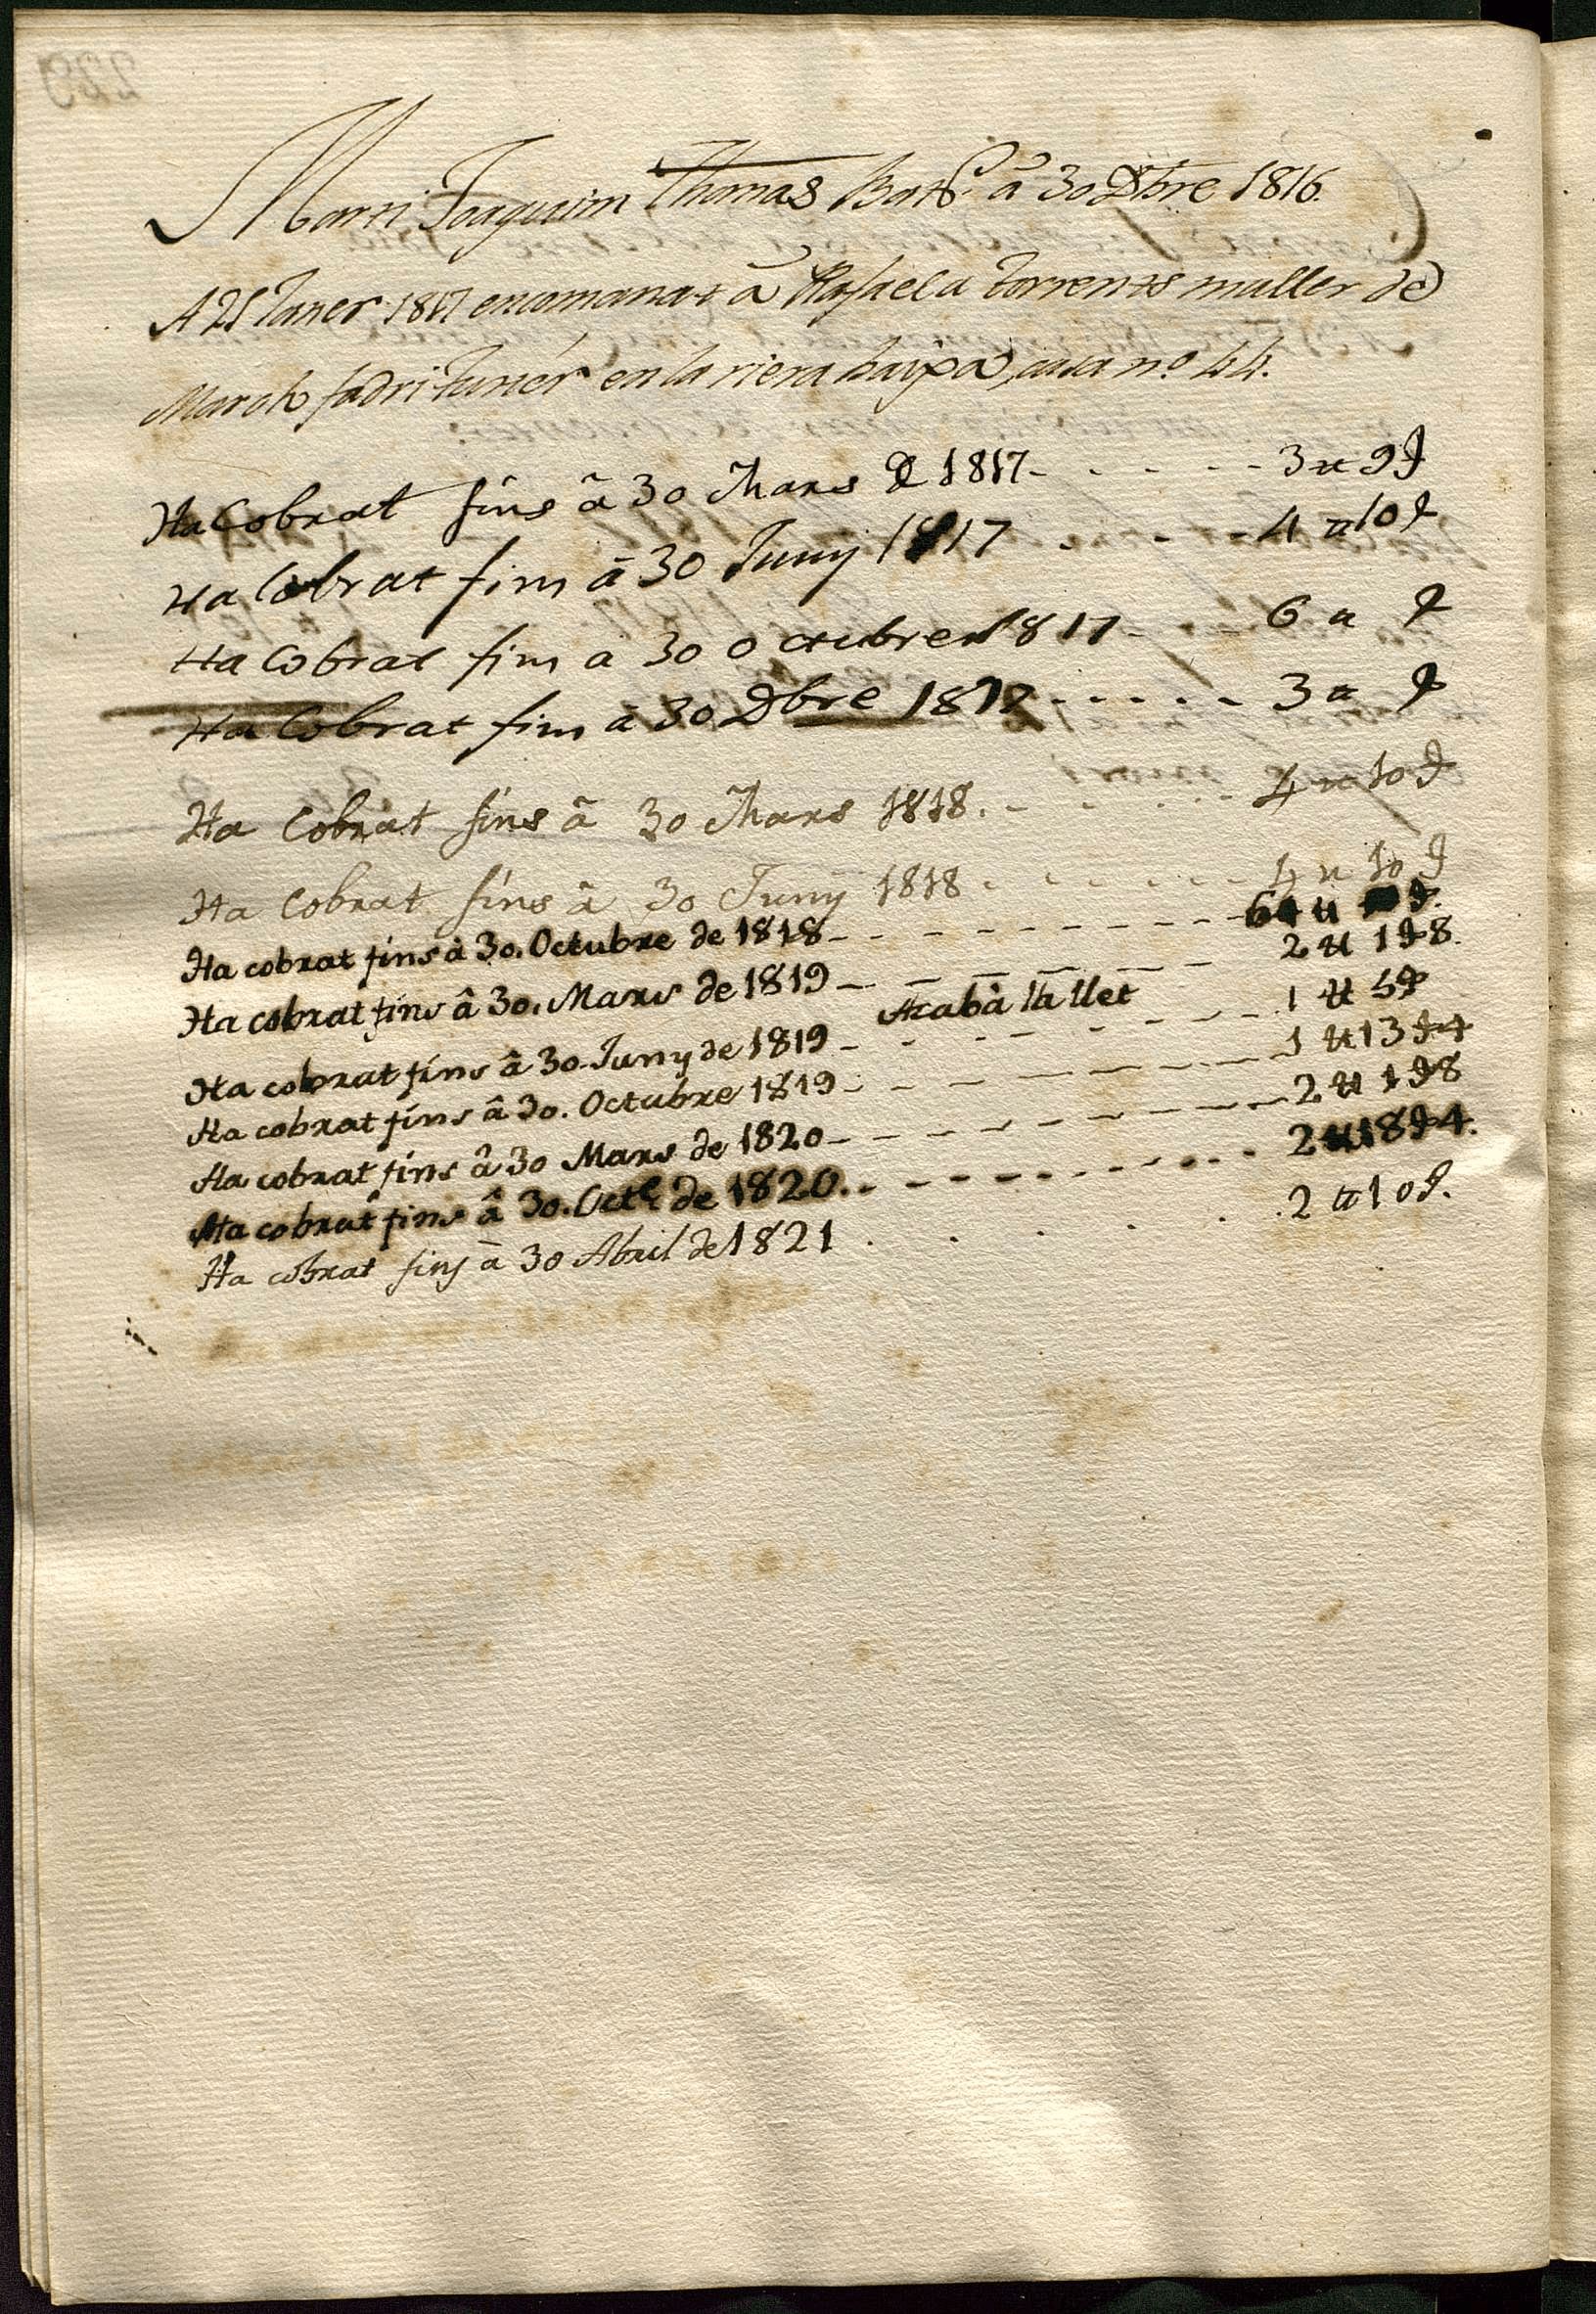 Marti Joaquim Thomas Batt. à 30 Dbre 1816.
A 21 Janer 1817 encomanat à Rafaela Torrents muller de
March fadri en la riera baixa, casa no. 44.
Ha Cobrat fins à 30 Mars de 1817 - - - - - - 3 ll 9 s
Ha Cobrat fins à 30 Juny 1817 - - - - - 4 ll 10 s
Ha Cobrat fins a 30 Octubre 1817 - - - 6 ll s
Ha Cobrat fins à 30 Dbre 1817 - - - - - - 3 ll s
Ha Cobrat fins à 30 Mars 1818. - - - - - 4 ll 10 s
Ha Cobrat fins à 30 Juny 1818 - - - - - - 4 ll 10 s
Ha cobrat fins à 30. Octubre de 1818 - - - - - - - - 6 ll s.
Ha cobrat fins â 30. Mars de 1819 - - - - - - 2 ll 1 s 8.
Acabà la llet
Ha cobrat fins â 30. Juny de 1819 - - - - - - - 1 ll 5 s
Ha cobrat fins â 30. Octubre 1819 - - - - - - - 1 ll 13 s 4
Ha cobrat fins â 30 Mars de 1820 - - - - - - - 2 ll 1 s 8
Ha cobrat fins â 30. Octe de 1820. - - - - - - - - 2 ll 18 s 4.
Ha cobrat fins à 30 Abril de 1821 . . . . . . 2 ll 10 s.